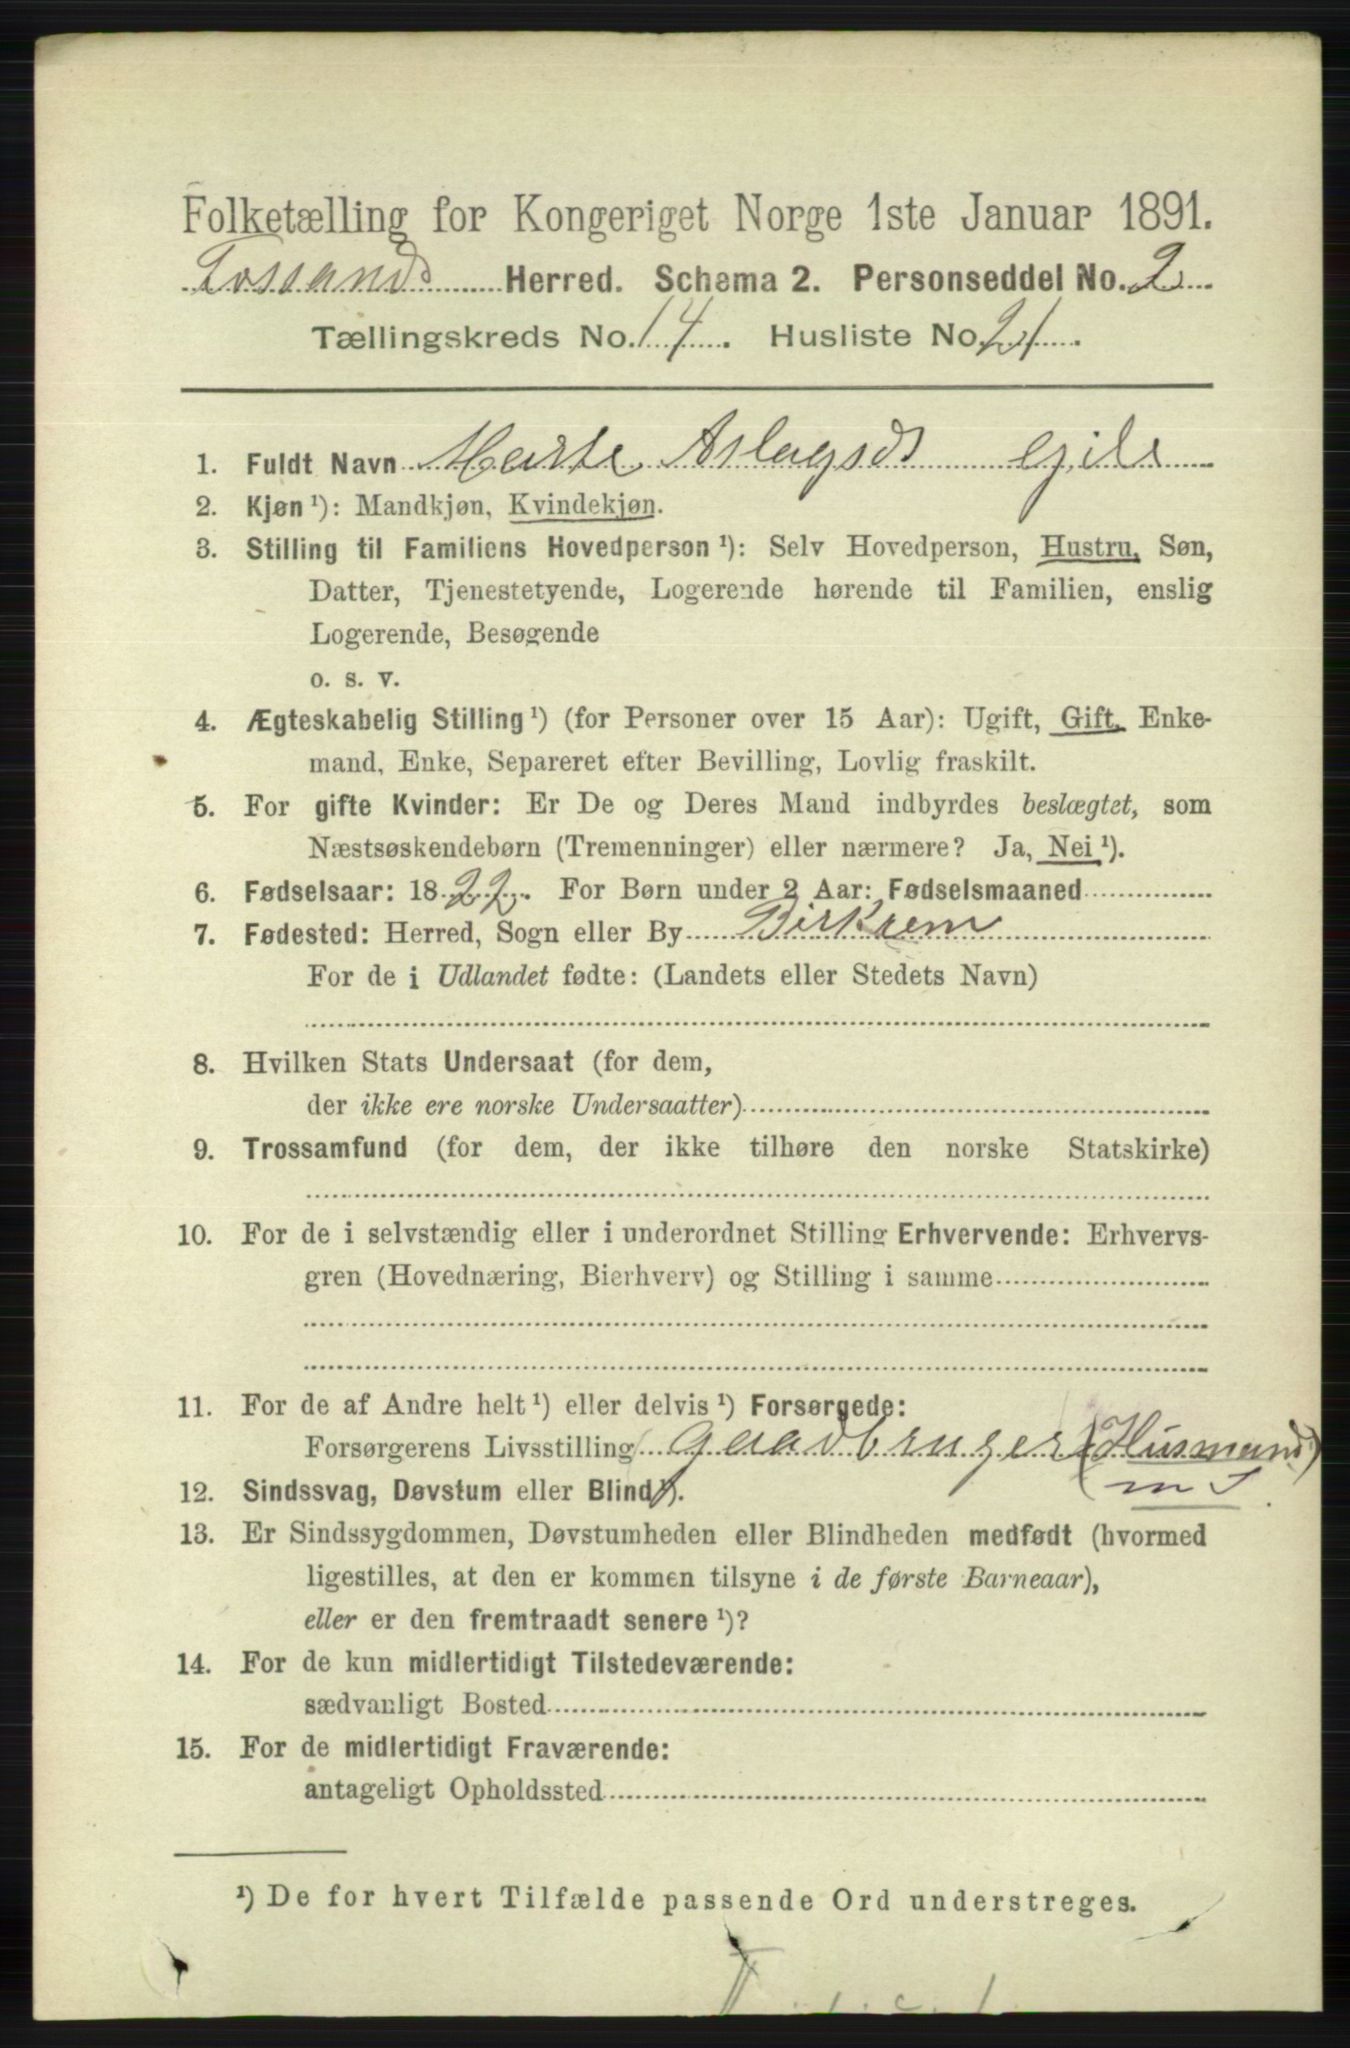 Folketælling for Kongeriget Norge 1ste Januar 1891.
Fossands Herred. Schema 2. Personseddel No. 2
Tællingskreds No. 14. Husliste No. 21.
1. Fuldt Navn Marte Aslagsdt Gjile
2. Kjøn ¹): Mandkjøn, Kvindekjøn.
3. Stilling til Familiens Hovedperson ¹): Selv Hovedperson, Hustru, Søn,
Datter, Tjenestetyende, Logerende hørende til Familien, enslig
Logerende, Besøgende
o. s. v.
4. Ægteskabelig Stilling ¹) (for Personer over 15 Aar): Ugift, Gift, Enke-
mand, Enke, Separeret efter Bevilling, Lovlig fraskilt.
5. For gifte Kvinder: Er De og Deres Mand indbyrdes beslægtet, som
Næstsøskendebørn (Tremenninger) eller nærmere? Ja, Nei ¹).
6. Fødselsaar: 1822. For Børn under 2 Aar: Fødselsmaaned
7. Fødested: Herred, Sogn eller By Birkrem
For de i Udlandet fødte: (Landets eller Stedets Navn)
8. Hvilken Stats Undersaat (for dem,
der ikke ere norske Undersaatter)
9. Trossamfund (for dem, der ikke tilhøre den norske Statskirke)
10. For de i selvstændig eller i underordnet Stilling Erhvervende: Erhvervs-
gren (Hovednæring, Bierhverv) og Stilling i samme
11. For de af Andre helt ¹) eller delvis ¹) Forsørgede:
Forsørgerens Livsstilling Gaardbruger (Husmand)
m J
12. Sindssvag, Døvstum eller Blind ¹).
13. Er Sindssygdommen, Døvstumheden eller Blindheden medfødt (hvormed
ligestilles, at den er kommen tilsyne i de første Barneaar),
eller er den fremtraadt senere ¹)?
14. For de kun midlertidigt Tilstedeværende:
sædvanligt Bosted
15. For de midlertidigt Fraværende:
antageligt Opholdssted
¹) De for hvert Tilfælde passende Ord understreges.